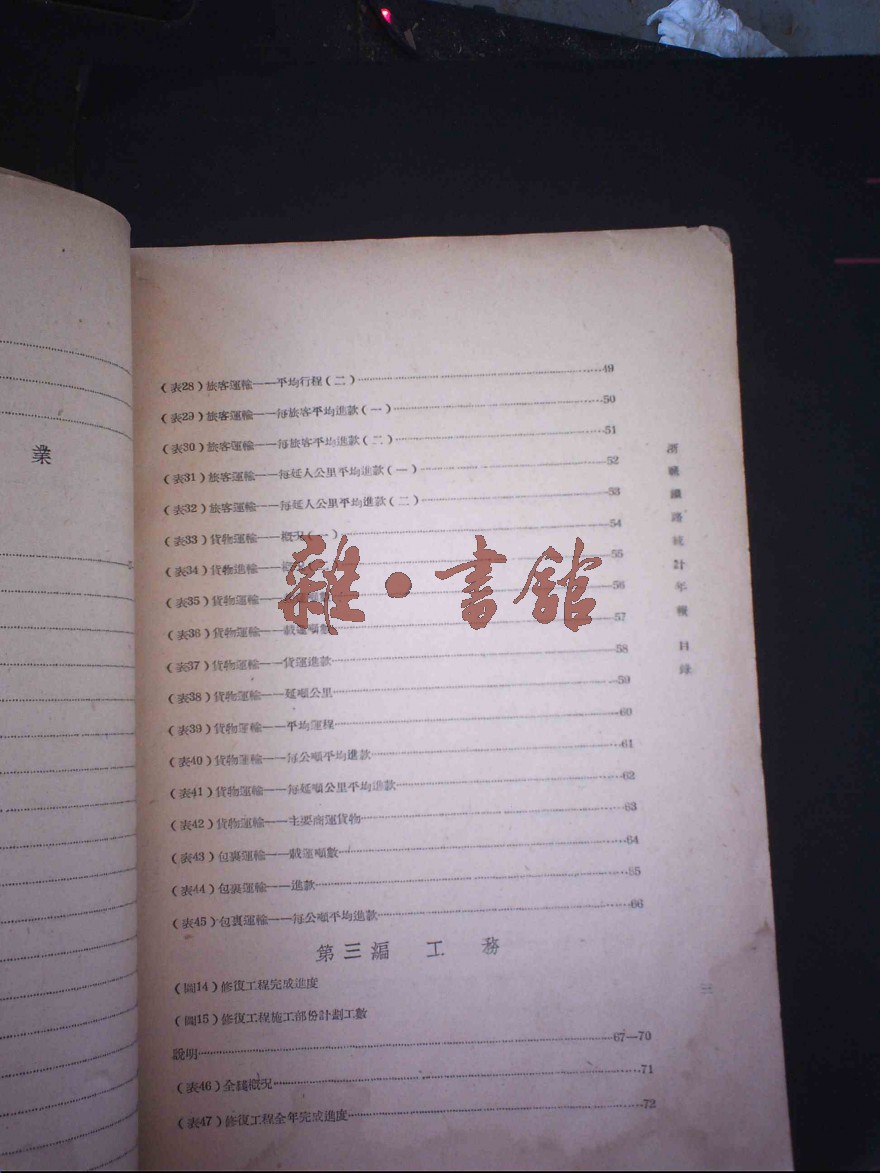 業
(表28)旅客運輸——平均行程(二)……49
(表29)旅客運輸——每旅客平均進款(一)……50
(表30)旅客運輸——每旅客平均進款(二)……51
(表31)旅客運輸——每延人公里平均進款(一)……52
(表32)旅客運輸——每延人公里平均進款(二)……53
(表33)貨物運輸——概況(一)……54
(表34)貨物進輸——……55
(表35)貨物運輸——……56
(表36)貨物運輸——載運噸數……57
(表37)貨物運輸——貨運進款……58
(表38)貨物運輸——延噸公里……59
(表39)貨物運輸——平均運程……60
(表40)貨物運輸——每公噸平均進款……61
(表41)貨物運輸——每延噸公里平均進款……62
(表42)貨物運輸——主要商運貨物……63
(表43)包裹運輸——載運噸數……64
(表44)包裹運輸——進款……65
(表45)包裹運輸——每公噸平均進款……66
第三編 工 務
(圖14)修復工程完成進度
(圖15)修復工程施工部份計劃工數
說明……67—70
(表46)全綫概況……71
(表47)修復工程全年完成進度……72
鐵路統計年報 目錄
三
雜·書舘